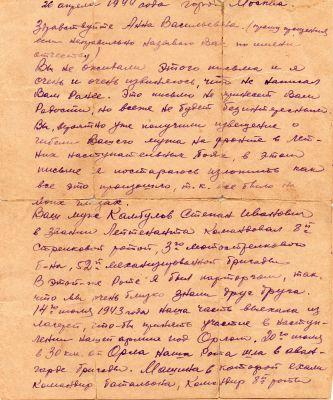 26 апреля 1944 года город Москва.
Здравствуйте Анна Васильевна (прошу прощения,
если неправильно называю Вас по имени
отчеству)
Вы не ожидали этого письма и я
очень и очень извиняюсь, что не написал
Вам ранее. Это письмо не принесет Вам
Радости, но все же не будет безинтересным
Вы, вероятно уже получили извещение о
гибели Вашего мужа на фронте в лет-
них наступательных боях, в этом
письме я постараюсь изложить как
все это произошло, т.к. все было на
моих глазах.
Ваш муж Камбулов Степан Иванович
в звании Лейтенанта командовал 8ой
стрелковой ротой, 3го мотострелкового
б-на, 52й механизированной бригады
В этой-же Роте я был парторгом, так
что мы очень близко знали друг друга.
14го июля 1943 года наша часть выехала из
лагерей, что-бы принять участие в насту-
плении нашей армии под Орлом, 20го июля
в 30 км. от Орла наша Рота шла в аван-
гарде бригады. Машина в которой ехали
командир батальона, командир 8й роты